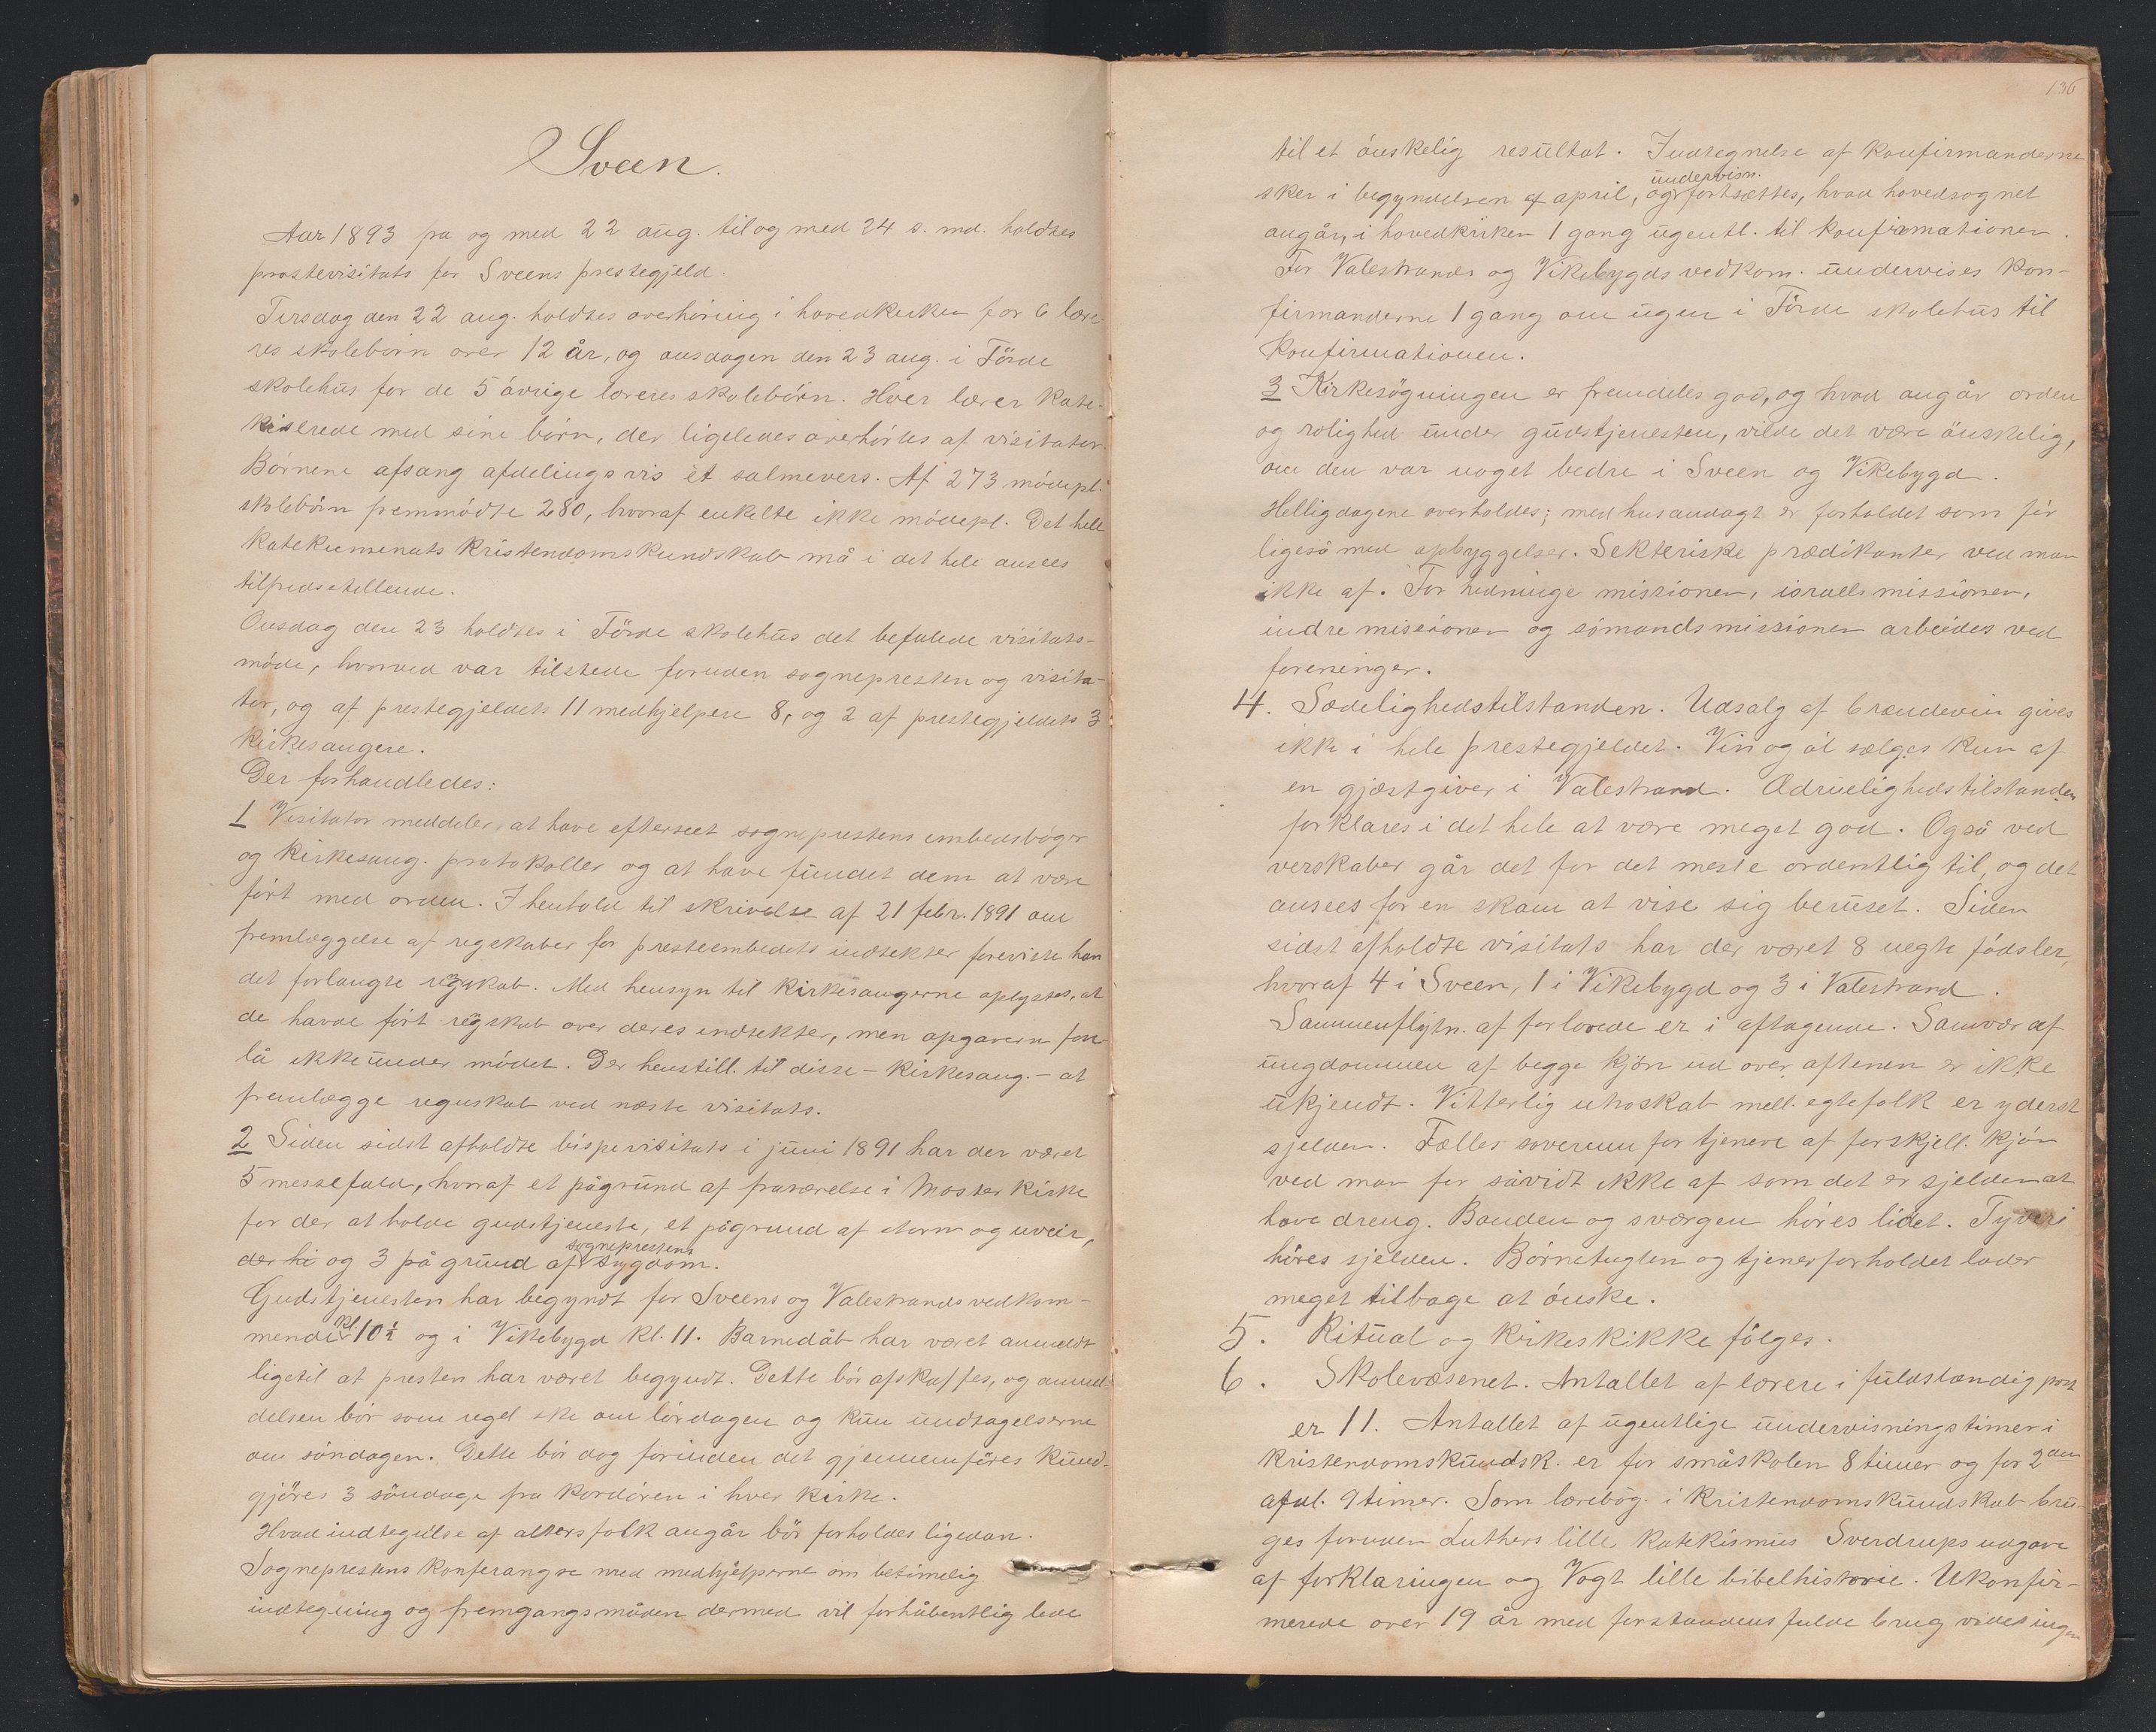 Sveen.
Aar 1893 fra og med 22 aug. til og med 24 s. md. holdtes
prostevisitats for Sveens prestegjeld.
Tirsdag den 22 aug. holdtes overhöring i hovedkirken for 6 lære-
res skolebörn over 12 år, og onsdagen den 23 aug. i Förde
skolehus for de 5 övrige læreres skolebörn. Hver lærer kate-
kiserede med sine börn, der ligeledes overhörtes af visitator.
Börnene afsang afdelingsvis et salmevers. Af 273 mödepl.
skolebörn fremmödte 280, hvoraf enkelte ikke mödepl. Det hele
katekumenats kristendomskundskab må i det hele ansees
tilfredsstillende.
Onsdag den 23 holdtes i Förde skolehus det befalede visitats-
möde, hvorved var tilstede foruden sognepresten og visita-
tor, og af prestegjeldets 11 medhjelpere 8, og 2 af prestegjeldets 3
kirkesangere.
Der forhandledes:
1 Visitator meddeler, at have efterseet sogneprestens embedsböger
og kirkesang. protokoller og at have fundet dem at være
fört med orden. I henhold til skrivelse af 21 febr. 1891 om
fremlæggelse af regskaber for presteembedets indtekter foreviste han
det forlangte regskab. Med hensyn til kirkesangerne oplystes, at
de havde fört regskab over deres indtekter, men opgaven fore-
lå ikke under mödet. Der henstill. til disse – kirkesang. – at
fremlægge regnskab ved næste visitats.
2 Siden sidst afholdte bispevisitats i juni 1891 har der været
5 messefald, hvoraf et pågrund af fraværelse i Moster kirke
for der at holde gudstjeneste, et pågrund af storm og uveir,
der hi og 3 på grund af sogneprestens sygdom.
Gudstjenesten har begyndt for Sveens og Valestrands vedkom-
mende kl. 10½ og i Vikebygd kl. 11. Barnedåb har været anmeldt
ligetil at presten har været begyndt. Dette bör afskaffes, og anmel-
delsen bör som regel ske om lördagen og kun undtagelserne
om söndagen. Dette bör dog forinden det gjennemföres kund-
gjöres 3 söndage fra kordören i hver kirke.
Hvad indtegnelse af altersfolk angår bör forholdes ligedan.
Sogneprestens konferangse med medhjelperne om betimelig
indtegning og fremgangsmåden dermed vil forhåbentlig lede
136
til et önskelig resultat. Indtegnelse af konfirmanderne
sker i begyndelsen af april, og undervisn. fortsættes, hvad hovedsognet
angår, i hovedkirken 1 gang ugentl. til konfirmationen.
For Valestrands og Vikebygds vedkom. undervises kon-
firmanderne 1 gang om ugen i Förde skolehus til
konfirmationen.
3 Kirkesögningen er fremdeles god, og hvad angår orden
og rolighed under gudstjenesten, vilde det være önskelig,
om den var noget bedre i Sveen og Vikebygd.
Helligdagene overholdes; med husandagt er forholdet som för
ligeså med opbyggelser. Sekteriske prædikanter ved man
ikke af. For hedninge missionen, israelsmissionen,
indre missionen og sömandsmissionen arbeides ved
foreninger.
4. Sædelighedstilstanden. Udsalg af brændevin gives
ikke i hele prestegjeldet. Vin og öl sælges kun af
en gjæstgiver i Valestrand. Ædruelighedstilstanden
forklares i det hele at være meget god. Også ved
verskaber går det for det meste ordentlig til, og det
ansees for en skam at vise sig beruset. Siden
sidst afholdte visitats har der været 8 uegte födsler,
hvoraf 4 i Sveen, 1 i Vikebygd og 3 i Valestrand.
Sammenflytn. af forlovede er i aftagende. Samvær af
ungdommen af begge kjön ud over aftenen er ikke
ukjendt. Vitterlig utroskab mell. egtefolk er yderst
sjelden. Fælles soverum for tjenere af forskjell. kjön
ved man for såvidt ikke af som det er sjelden at
have dreng. Banden og sværgen höres lidet. Tyveri
höres sjelden. Börnetugten og tjenerforholdet lader
meget tilbage at önske.
5. Ritual og kirkeskikke fölges.
6. Skolevæsenet. Antallet af lærere i fuldstændig post
er 11. Antallet af ugentlige undervisningstimer i
kristendomskundsk. er for småskolen 8 timer og for 2den
afdl. 9 timer. Som lærebög. i kristendomskundskab bru-
ges foruden Luthers lille katekismus Sverdrups udgave
af forklaringen og Vogt lille bibelhistorie. Ukonfir-
merede over 19 år med forstandens fulde brug vides ingen